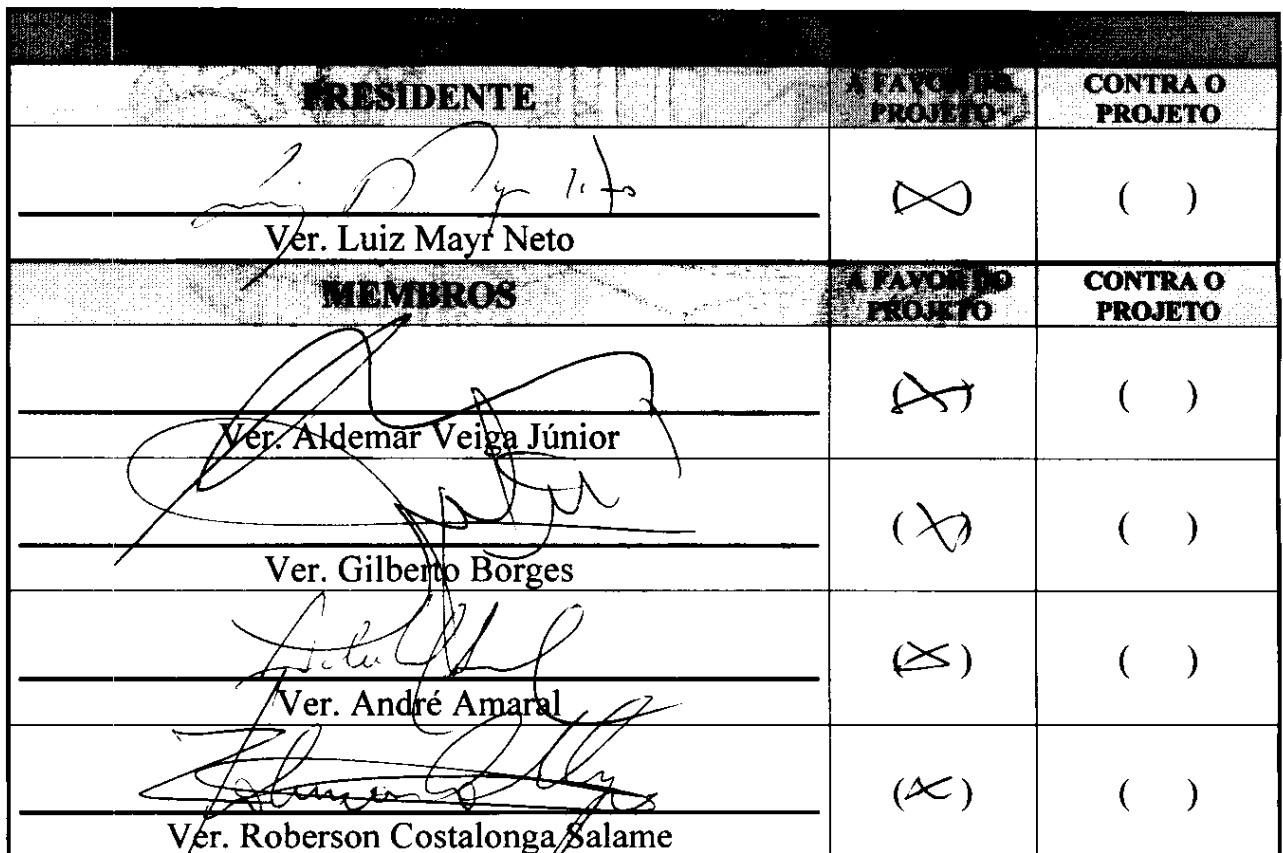 PRESIDENTE
A FAVOR DO
PROJETO
CONTRA O
PROJETO
Ver. Luiz Mayr Neto
( )
MEMBROS
A FAVOR DO
PROJETO
CONTRA O
PROJETO
Ver. Aldemar Veiga Júnior
(X)
( )
Ver. Gilberto Borges
(X)
( )
Ver. André Amaral
(X)
( )
Ver. Roberson Costalonga Salame
(X)
( )